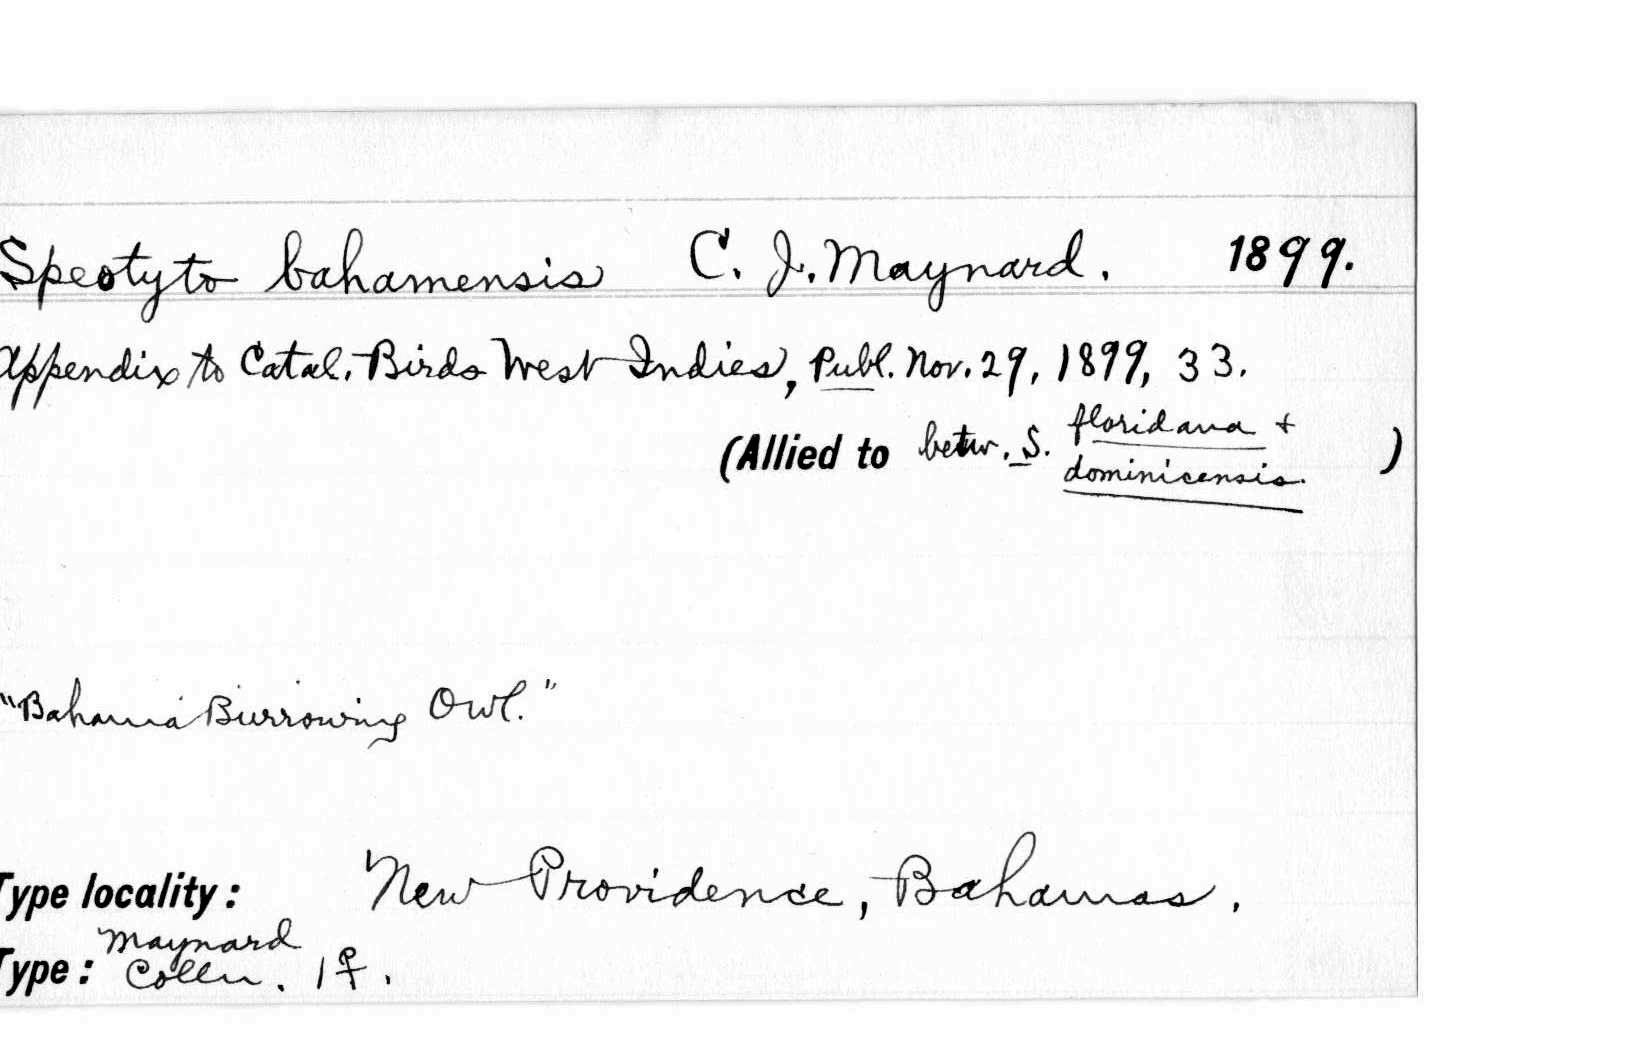 Speotyto bahamensis C. J. Maynard. 1899.
Appendix to Catal. Birds West Indies, Publ. Nov. 29, 1899, 33.
(Allied to betw. S. floridana +
dominicensis. )
"Bahama Burrowing Owl."
Type locality: New Providence, Bahamas.
Maynard
Type: Colln. 1♀.